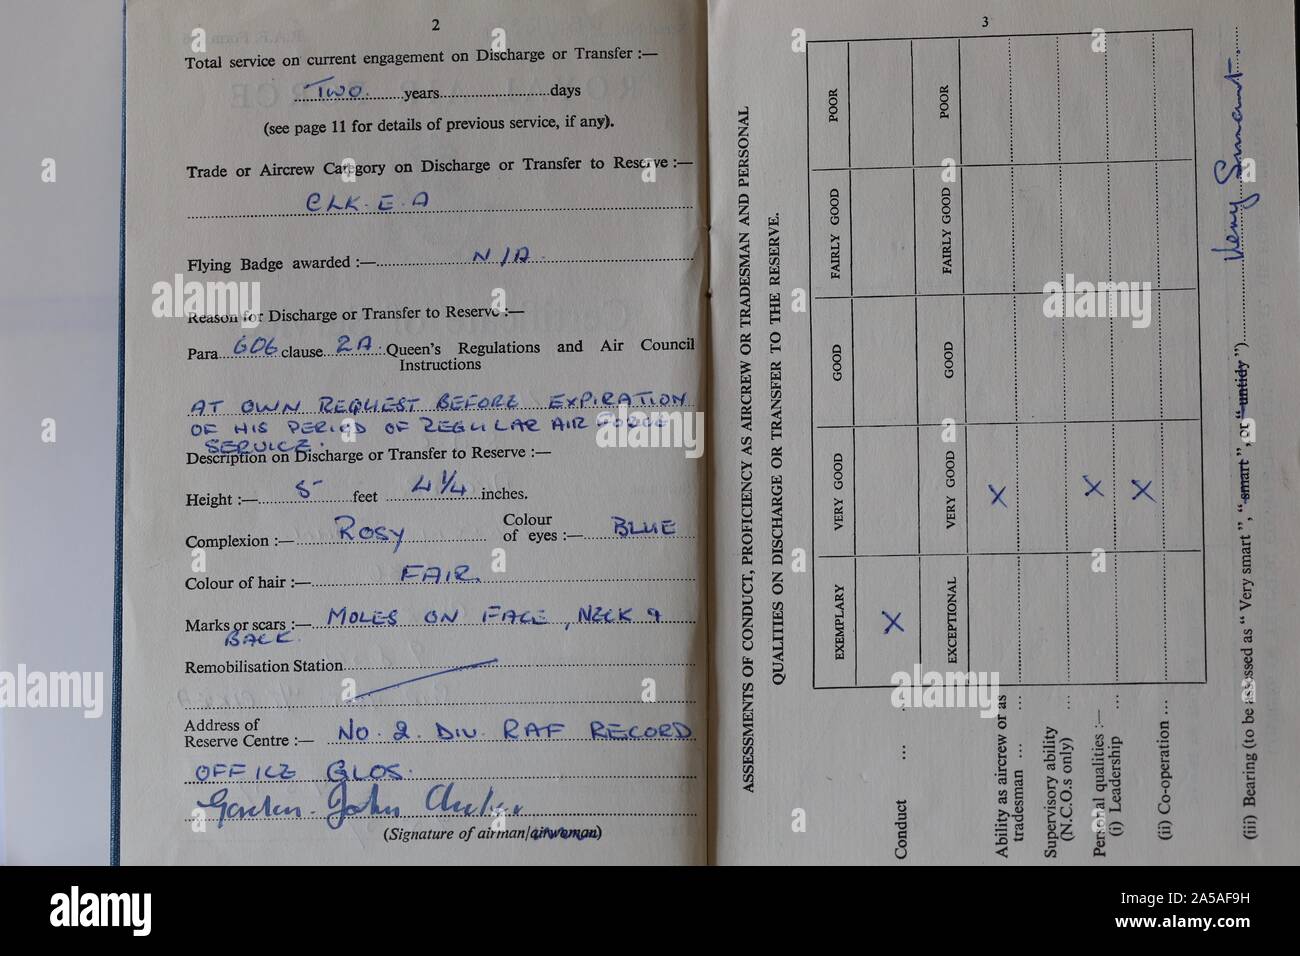 2
Total service on current engagement on Discharge or Transfer :—
Two years days
(see page 11 for details of previous service, if any).
Trade or Aircrew Category on Discharge or Transfer to Reserve :—
CLK. E. A
Flying Badge awarded :— N/A.
Reason for Discharge or Transfer to Reserve :—
Para. 606 clause 2A. Queen's Regulations and Air Council
Instructions
AT OWN REQUEST BEFORE EXPIRATION
OF HIS PERIOD OF REGULAR AIR FORCE
SERVICE.
Description on Discharge or Transfer to Reserve :—
Height :— 5 feet 4 1/4 inches.
Complexion :— ROSY Colour of eyes :— BLUE
Colour of hair :— FAIR.
Marks or scars :— MOLES ON FACE, NECK &
BACK.
Remobilisation Station
Address of
Reserve Centre :— NO. 2. DIV. RAF RECORD
OFFICE GLOS.
Gordon John
(Signature of airman/airwoman)
3
ASSESSMENTS OF CONDUCT, PROFICIENCY AS AIRCREW OR TRADESMAN AND PERSONAL
QUALITIES ON DISCHARGE OR TRANSFER TO THE RESERVE.
EXEMPLARY VERY GOOD GOOD FAIRLY GOOD POOR
Conduct ... ... X
EXCEPTIONAL VERY GOOD GOOD FAIRLY GOOD POOR
Ability as aircrew or as
tradesman ... ... X
Supervisory ability
(N.C.O.s only) ...
Personal qualities :—
(i) Leadership ... X
(ii) Co-operation ... X
(iii) Bearing (to be assessed as "Very smart", "smart", or "untidy") Very Smart.
alamy
alamy
Image ID: 2A5AF9H
www.alamy.com